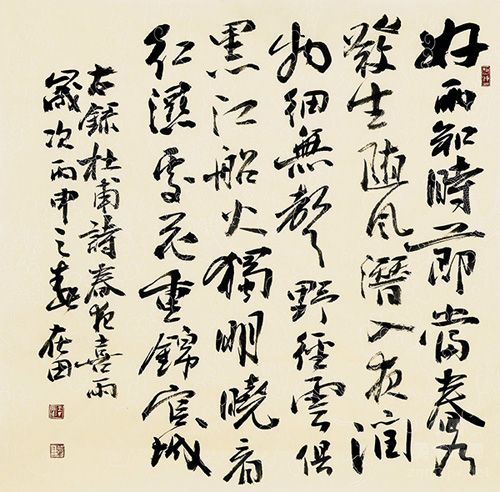 好雨知時節當春乃
發生随风潛入夜潤
物細無聲野徑雲俱
黑江船火獨明曉看
红濕處花重錦官城
右録杜甫詩春夜喜雨
歲次丙申之春在田